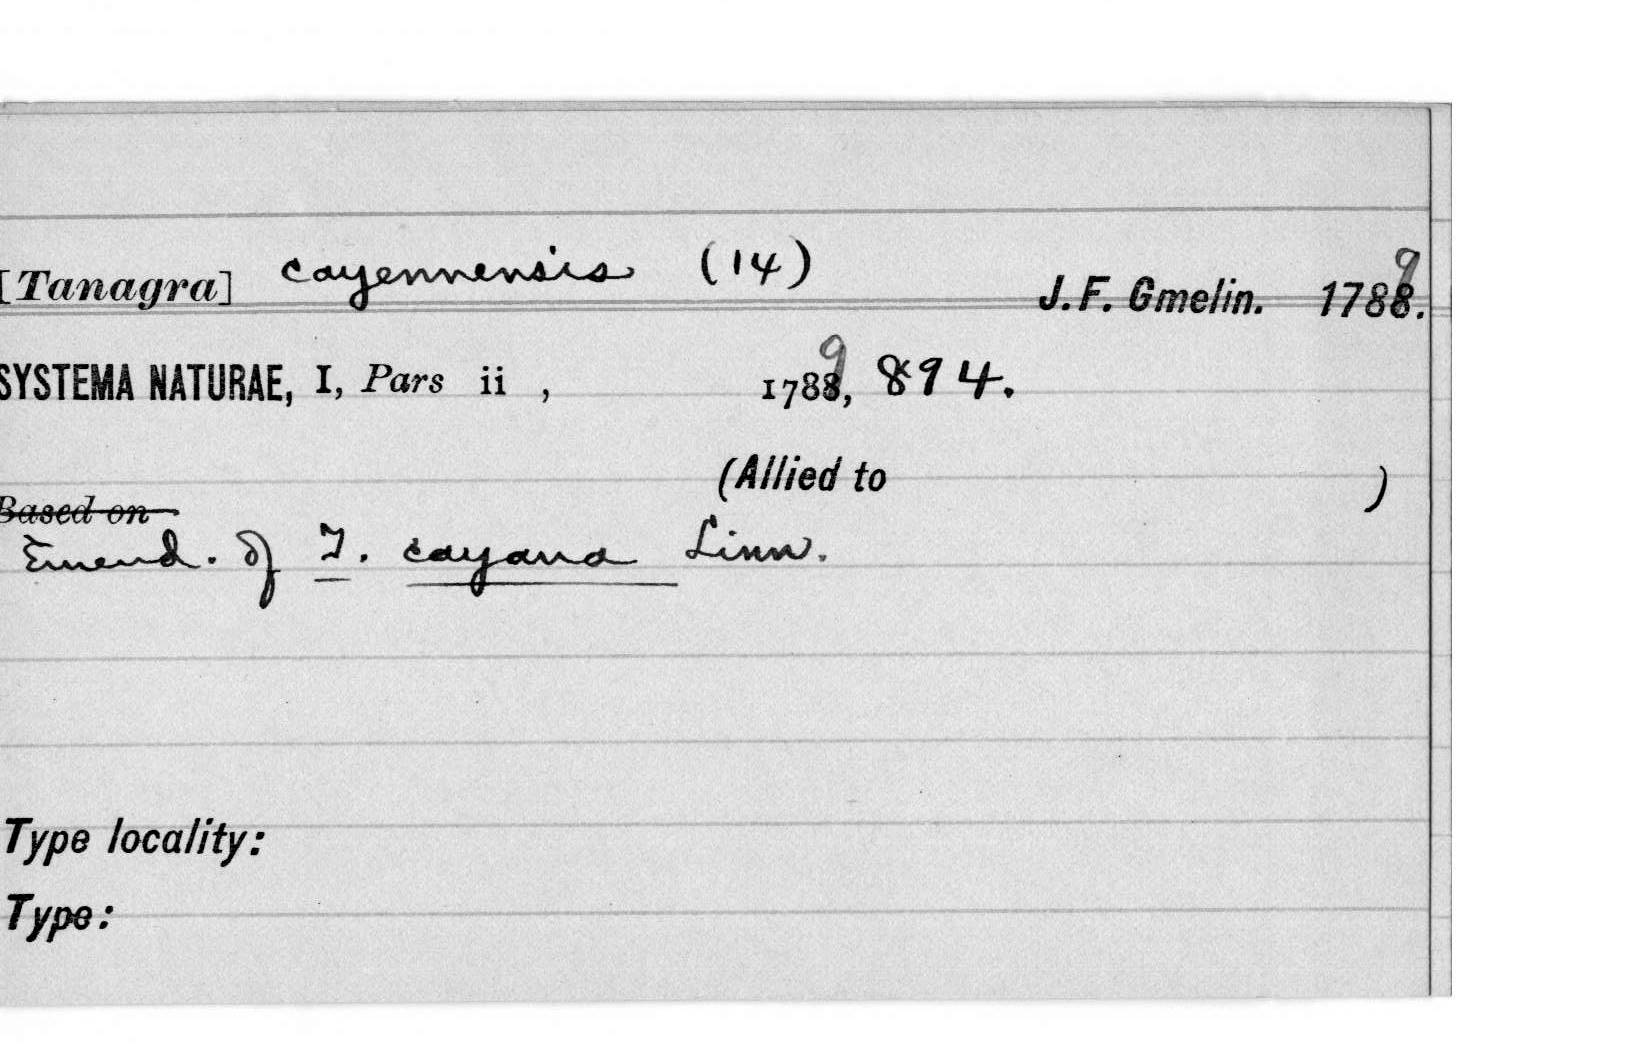 [Tanagra] cayennensis (14) J. F. Gmelin. 1788. 9
SYSTEMA NATURAE, I, Pars ii , 1788, 9 894.
(Allied to )
Based on
Emend. of T. cayana Linn.
Type locality:
Type: